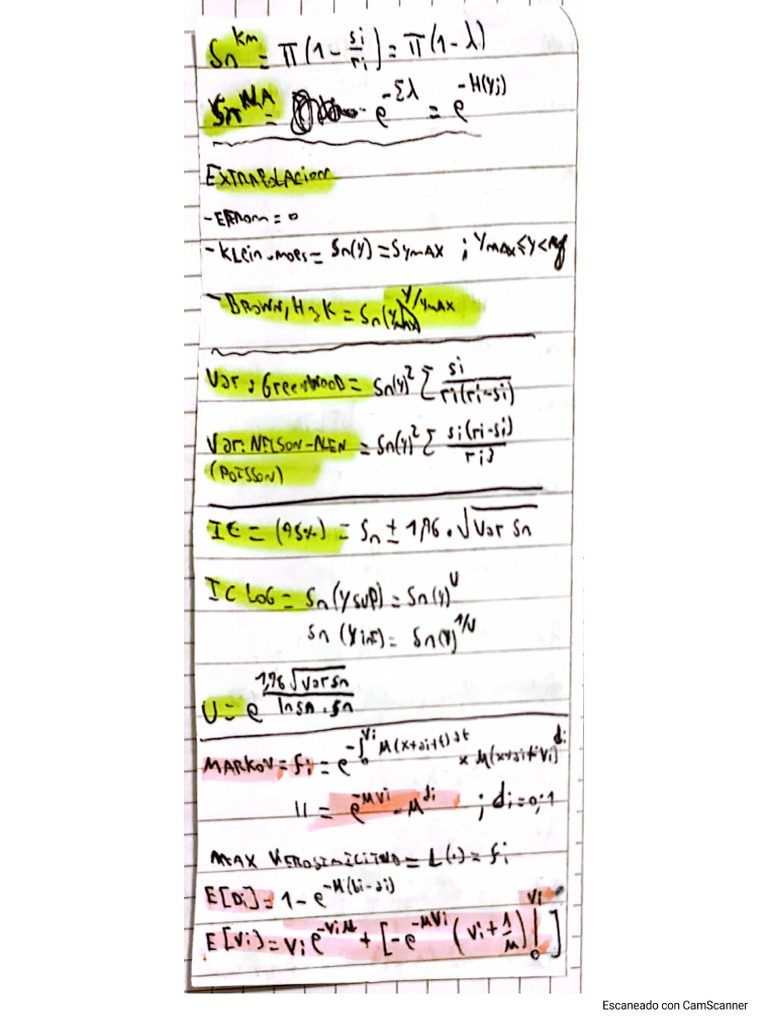 Sn^KM = π(1 - si/ri) = π(1-λ)
Sn^NA = e^-Σλ = e^-H(yj)
EXTRAPOLACION
- EFRON = 0
- KLEIN-MOES = Sn(y) = Symax ; ymax ≤ y <
- BROWN, H > K = Sn(ymax)^y/ymax
Var: Greenwood = Sn(y)² Σ si/ri(ri-si)
Var: NELSON-ALEN = Sn(y)² Σ si(ri-si)/ri³
(POISSON)
IC = (95%) = Sn ± 1,96 . √Var Sn
IC LOG = Sn(ysup) = Sn(y)^U
Sn(yinf) = Sn(y)^1/U
U = e^1,96 √Var Sn / ln Sn . Sn
MARKOV = fi = e^-∫₀^vi M(x+ai+t) dt × M(x+ai+vi)^di
11 = e^-Mvi . M^di ; di=0;1
MAX VEROSIMILITUD = L(.) = fi
E[Di] = 1 - e^-M(bi-ai)
E[Vi] = Vi e^-ViM + [-e^-MVi (vi + 1/M) |₀^vi ]
Escaneado con CamScanner